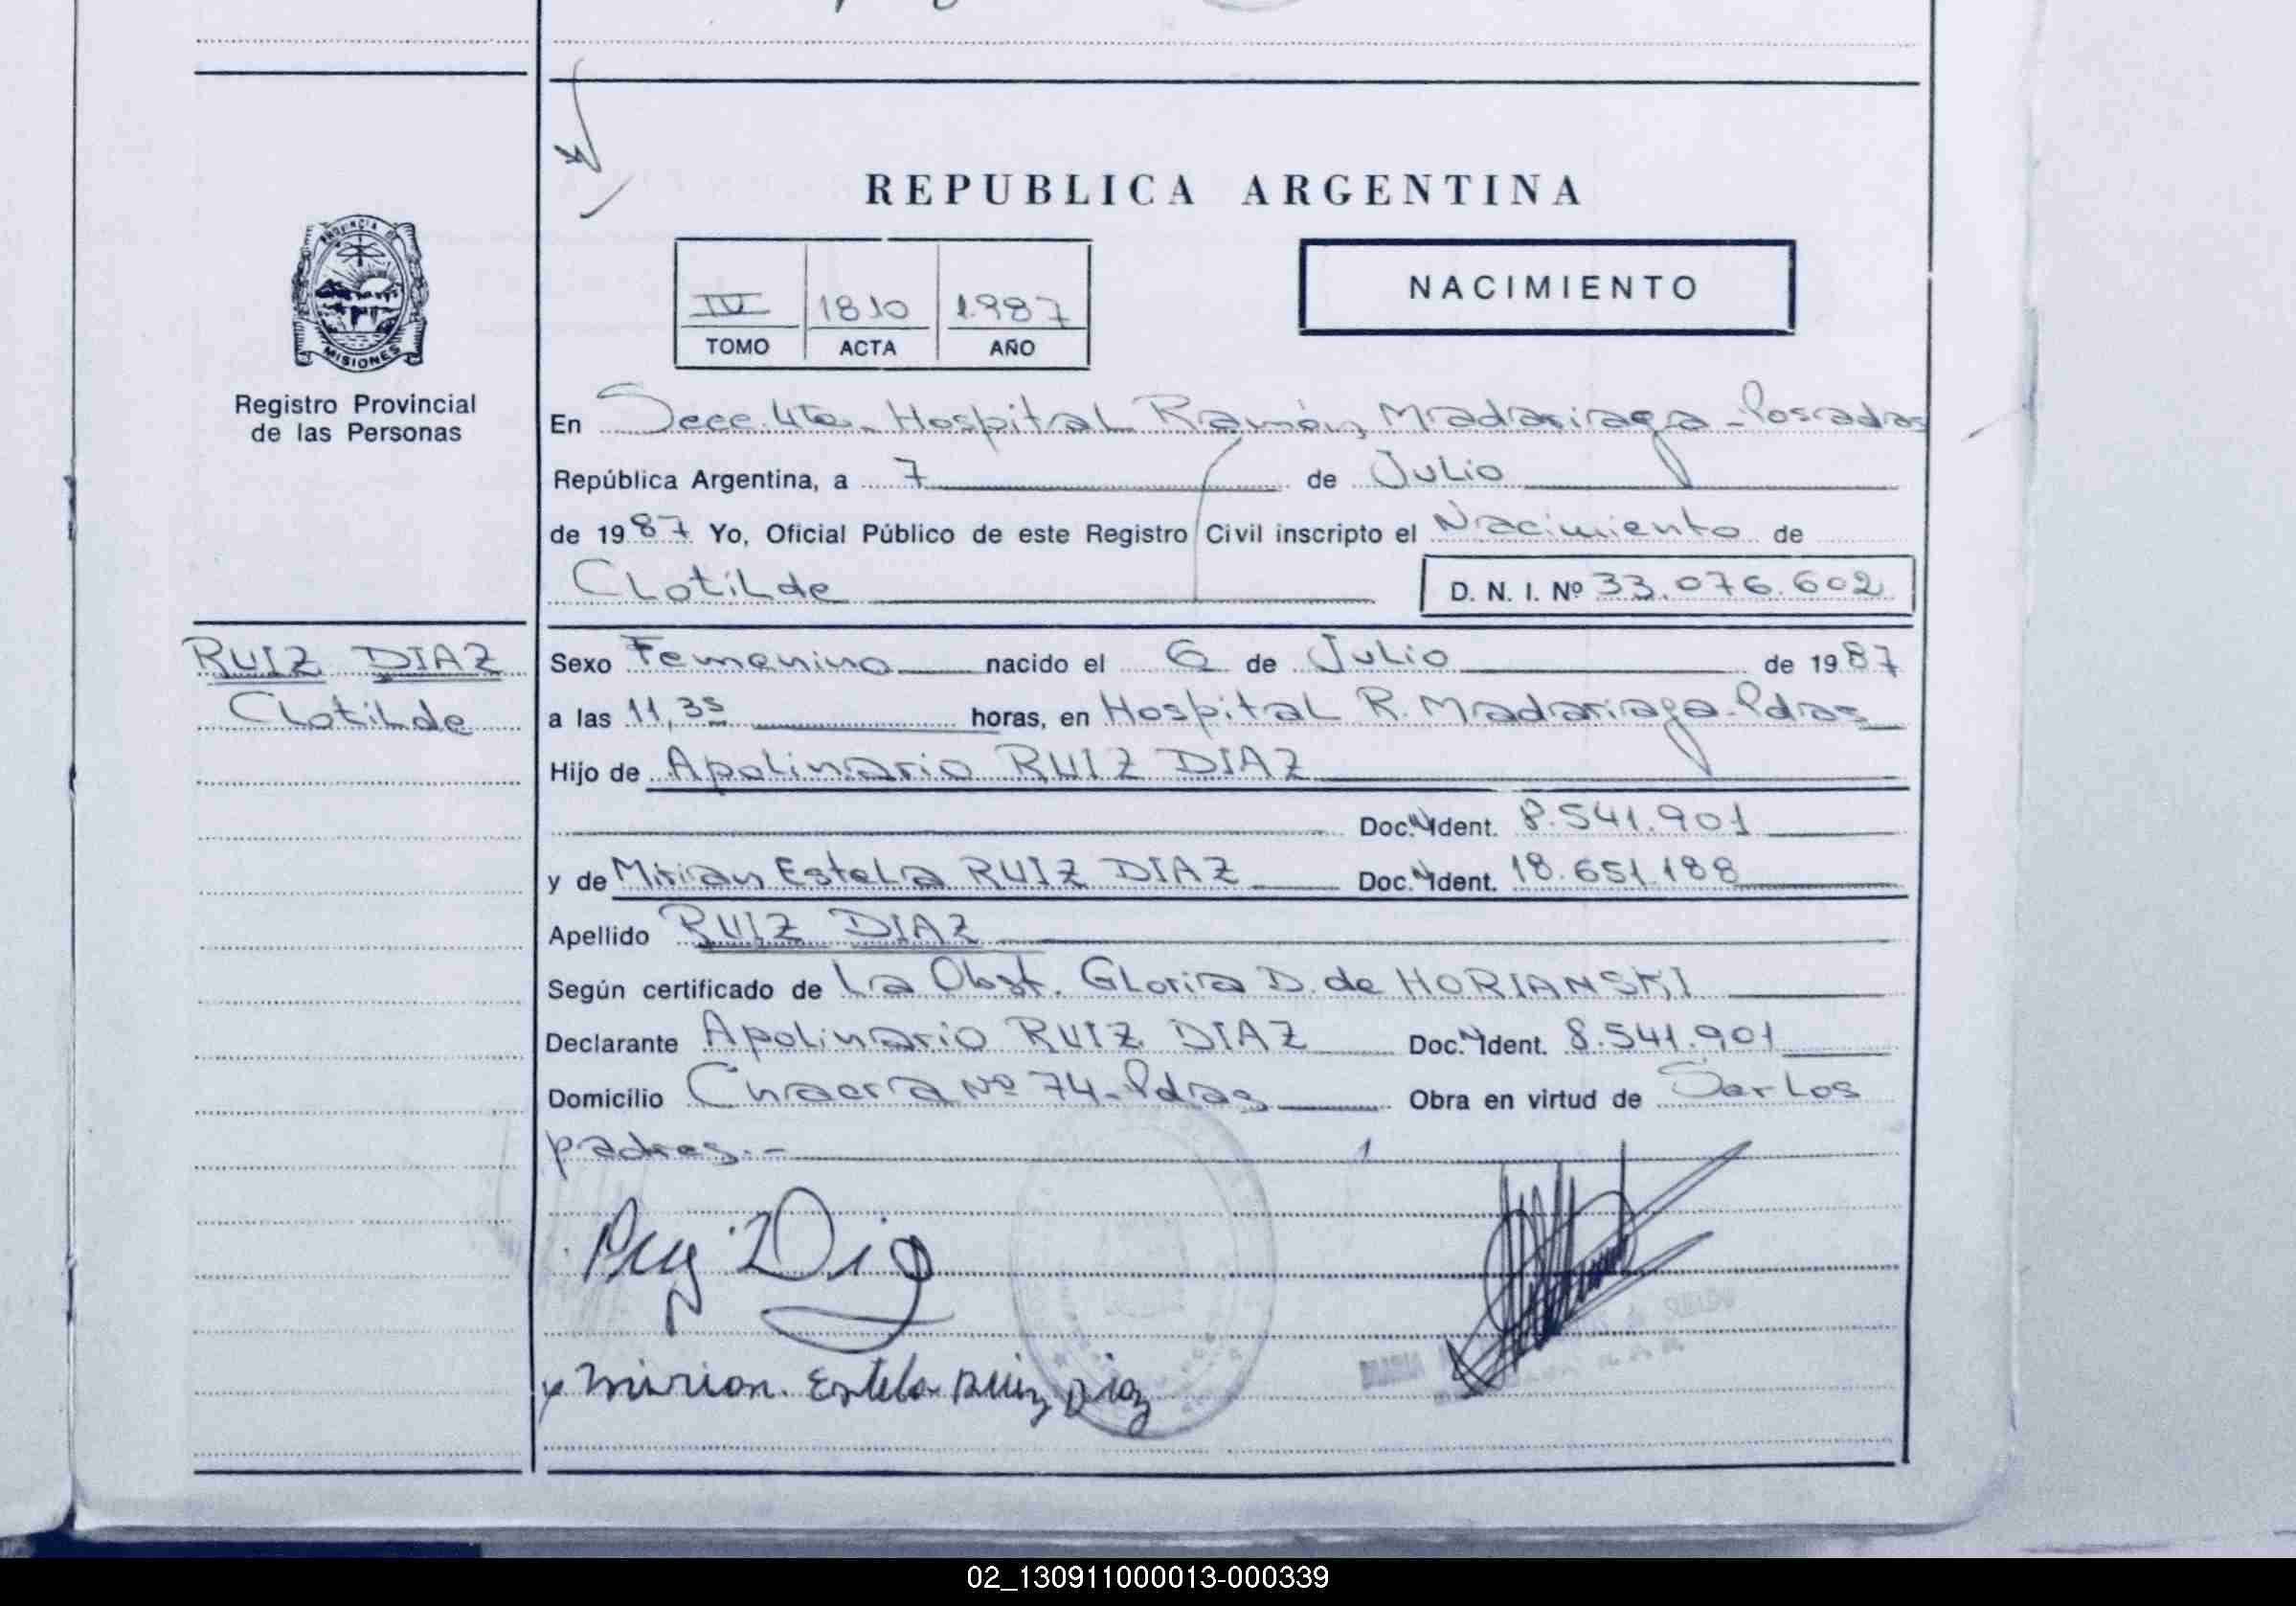 REPUBLICA ARGENTINA
PROVINCIA DE
MISIONES
Registro Provincial
de las Personas
IV 1810 1987
TOMO ACTA AÑO
NACIMIENTO
En Secc. 4ta. Hospital Ramón Madariaga - Posadas
República Argentina, a 7 de Julio
de 1987 Yo, Oficial Público de este Registro Civil inscripto el Nacimiento de
Clotilde D. N. I. Nº 33.076.602
RUIZ DIAZ
Clotilde
Sexo Femenino nacido el 6 de Julio de 1987
a las 11,35 horas, en Hospital R. Madariaga - Pdas
Hijo de Apolinario RUIZ DIAZ
Doc. Ident. 8.541.901
y de Mirian Estela RUIZ DIAZ Doc. Ident. 18.651.188
Apellido RUIZ DIAZ
Según certificado de La Obst. Gloria D. de HORIANSKI
Declarante Apolinario RUIZ DIAZ Doc. Ident. 8.541.901
Domicilio Chacra Nº 74 - Pdas Obra en virtud de Ser los
padres.-
x Mirian. Estela Ruiz Diaz
02_130911000013-000339